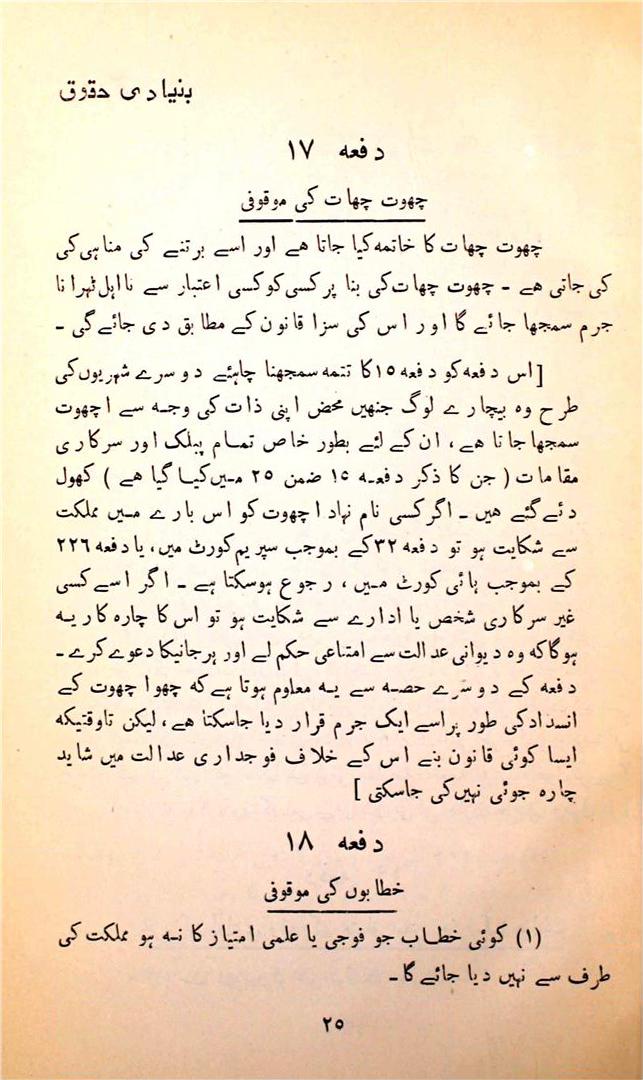 بنیادی حقوق
دفعہ ۱۷
چھوت چھات کی موقوفی
چھوت چھات کا خاتمہ کیا جاتا ھے اور اسے برتنے کی مناہی کی
کی جاتی ھے ۔ چھوت چھات کی بنا پر کسی کو کسی اعتبار سے نااہل ٹہرانا
جرم سمجھا جائے گا اور اس کی سزا قانون کے مطابق دی جائے گی ۔
[ اس دفعہ کو دفعہ ۱۵ کا تتمہ سمجھنا چاہئے دوسرے شہریوں کی
طرح وہ بیچارے لوگ جنھیں محض اپنی ذات کی وجہ سے اچھوت
سمجھا جاتا ھے ، ان کے لئے بطور خاص تمام پبلک اور سرکاری
مقامات ( جن کا ذکر دفعہ ۱۵ ضمن ۲۵ میں کیا گیا ھے ) کھول
دئے گئے ھیں ۔ اگر کسی نام نہاد اچھوت کو اس بارے میں مملکت
سے شکایت ہو تو دفعہ ۳۲ کے بموجب سپریم کورٹ میں ، یا دفعہ ۲۲۶
کے بموجب ہائی کورٹ میں ، رجوع ہوسکتا ہے ۔ اگر اسے کسی
غیر سرکاری شخص یا ادارے سے شکایت ہو تو اس کا چارہ کار یہ
ہوگا کہ وہ دیوانی عدالت سے امتناعی حکم لے اور ہرجانیکا دعوے کرے ۔
دفعہ کے دوسرے حصہ سے یہ معلوم ہوتا ہے کہ چھوا چھوت کے
انسداد کی طور پر اسے ایک جرم قرار دیا جاسکتا ھے ، لیکن تاوقتیکہ
ایسا کوئی قانون بنے اس کے خلاف فوجداری عدالت میں شاید
چارہ جوئی نہیں کی جاسکتی ]
دفعہ ۱۸
خطابوں کی موقوفی
(۱) کوئی خطاب جو فوجی یا علمی امتیاز کا نہ ہو مملکت کی
طرف سے نہیں دیا جائے گا ۔
۲۵